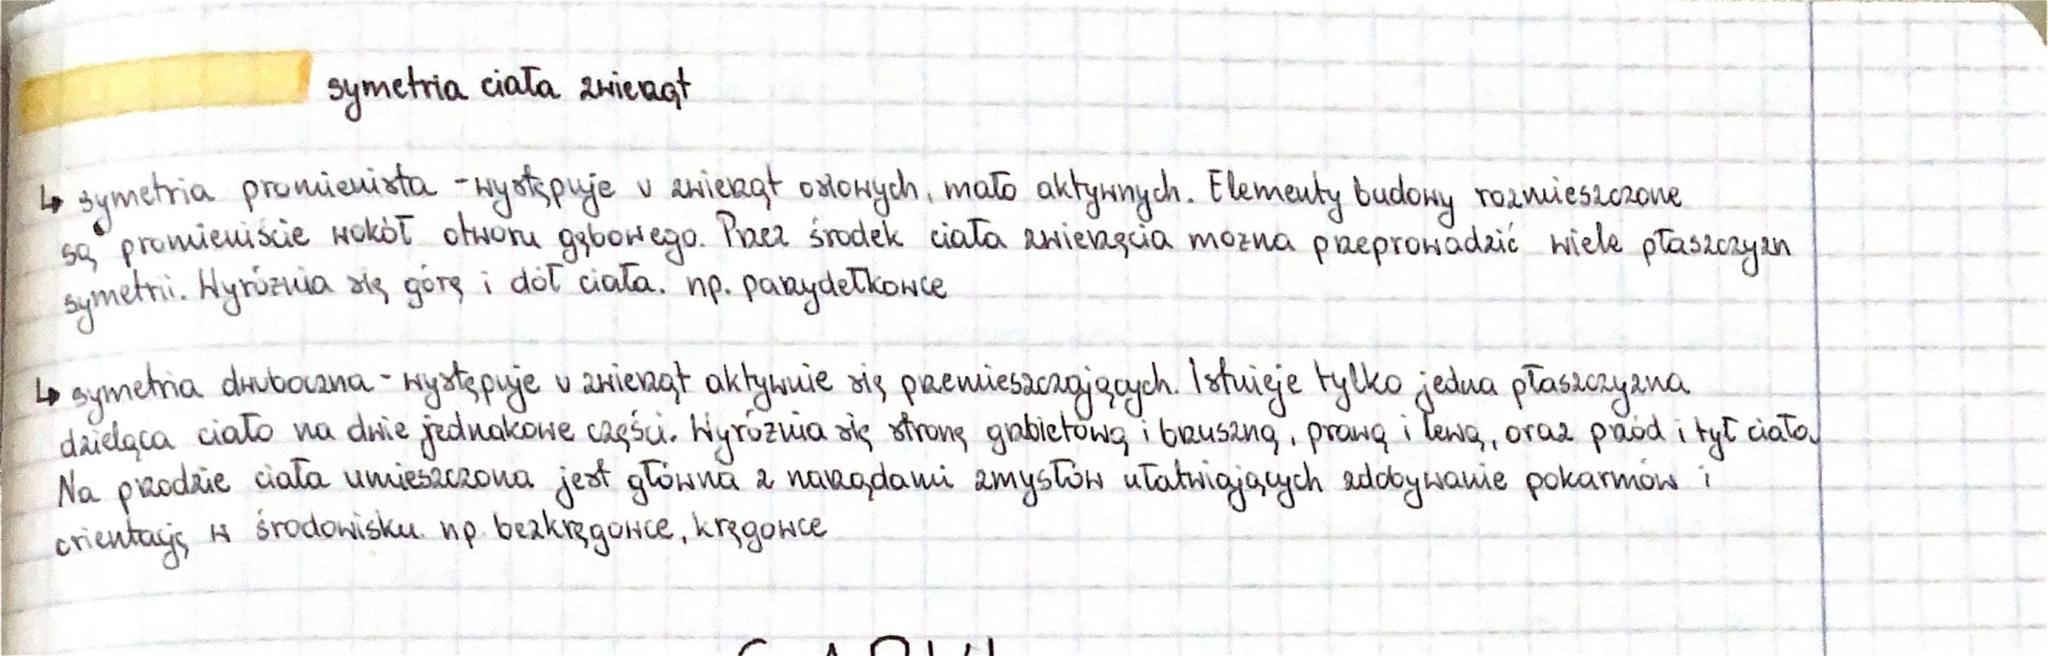 symetria ciała zwierząt
↳ symetria promienista - występuje u zwierząt osiowych, mało aktywnych. Elementy budowy rozmieszczone
są promieniście wokół otworu gębowego. Przez środek ciała zwierzęcia można przeprowadzić wiele płaszczyzn
symetrii. Wyróżnia się górę i dół ciała. np. parzydełkowce
↳ symetria dwuboczna - występuje u zwierząt aktywnie się przemieszczających. Istnieje tylko jedna płaszczyzna
dzieląca ciało na dwie jednakowe części. Wyróżnia się stronę grzbietową i brzuszną, prawą i lewą, oraz przód i tył ciała.
Na przodzie ciała umieszczona jest główna z narządami zmysłów ułatwiających zdobywanie pokarmów i
orientację w środowisku. np. bezkręgowce, kręgowce